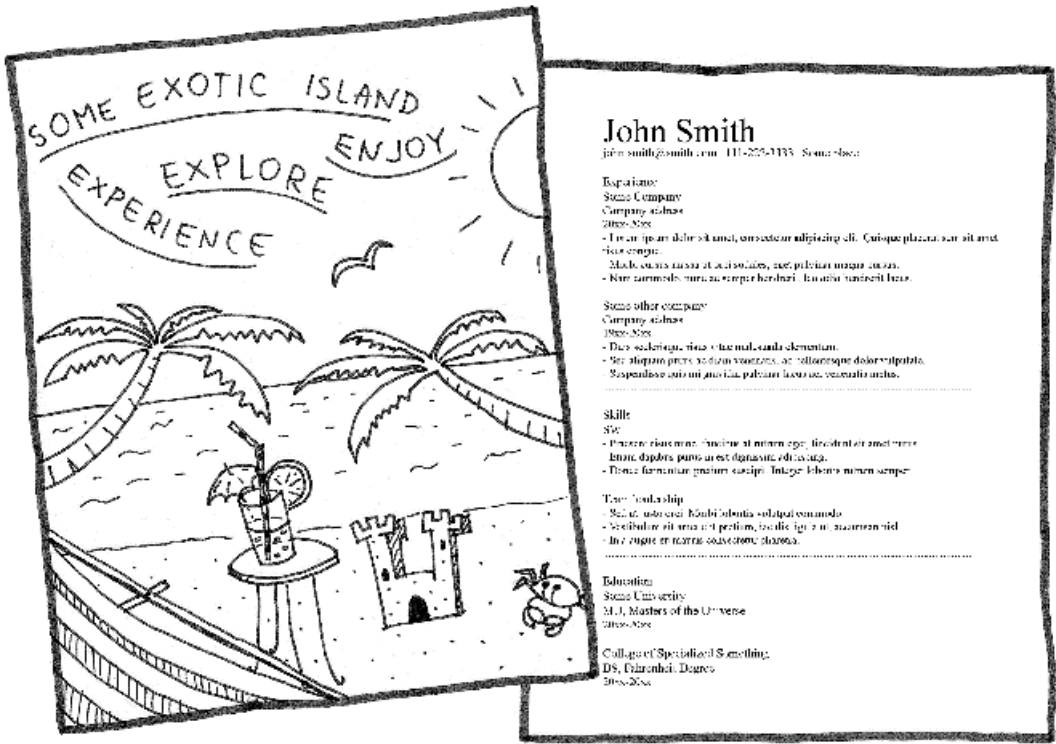 SOME EXOTIC ISLAND
ENJOY
EXPLORE
EXPERIENCE
John Smith
Experience
Some Company
Company address
20xx-20xx
- Lorem ipsum dolor sit amet, consectetur adipiscing elit. Quisque placerat sem sit amet
risus congue.
- Morbi cursus massa ut orci sodales, eget pulvinar magna cursus.
- Nam commodo nunc ac semper hendrerit.
Some other company
Company address
19xx-20xx
- Duis scelerisque risus vitae malesuada elementum.
- Sed aliquam purus ac diam venenatis, ac pellentesque dolor vulputate.
- Suspendisse quis mi gravida, pulvinar lacus nec, venenatis metus.
Skills
SW
- Praesent risus nunc, faucibus at rutrum eget, tincidunt sit amet purus.
- Etiam dapibus purus in est dignissim adipiscing.
- Donec fermentum pretium suscipit. Integer lobortis rutrum semper.
Team leadership
- Sed at justo orci. Morbi lobortis volutpat commodo.
- Vestibulum sit amet elit pretium, iaculis ligula ut, accumsan nisl.
- In augue et mattis consectetur pharetra.
Education
Some University
M.U, Masters of the Universe
20xx-20xx
College of Specialized Something
DS, Fahrenheit Degree
20xx-20xx